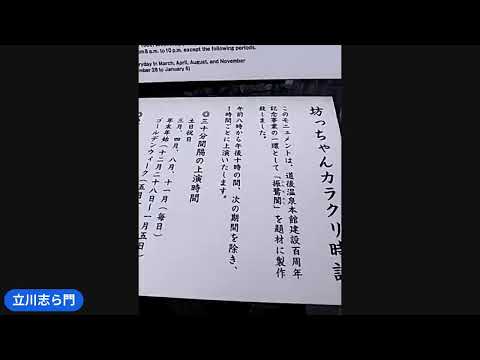 8 a.m. to 10 p.m. except the following periods.
eryday in March, April, August, and November
mber 28 to January 5)
坊っちゃんカラクリ時計
このモニュメントは、道後温泉本館建設百周年
記念事業の一環として「振鷺閣」を題材に製作
致しました。
午前八時から午後十時の間、次の期間を除き、
1時間ごとに上演いたします。
◎三十分間隔の上演時間
土日祝日
三月、四月、八月、十一月(毎日)
年末年始(十二月二十八日ー一月五日)
ゴールデンウィーク(五月
立川志ら門